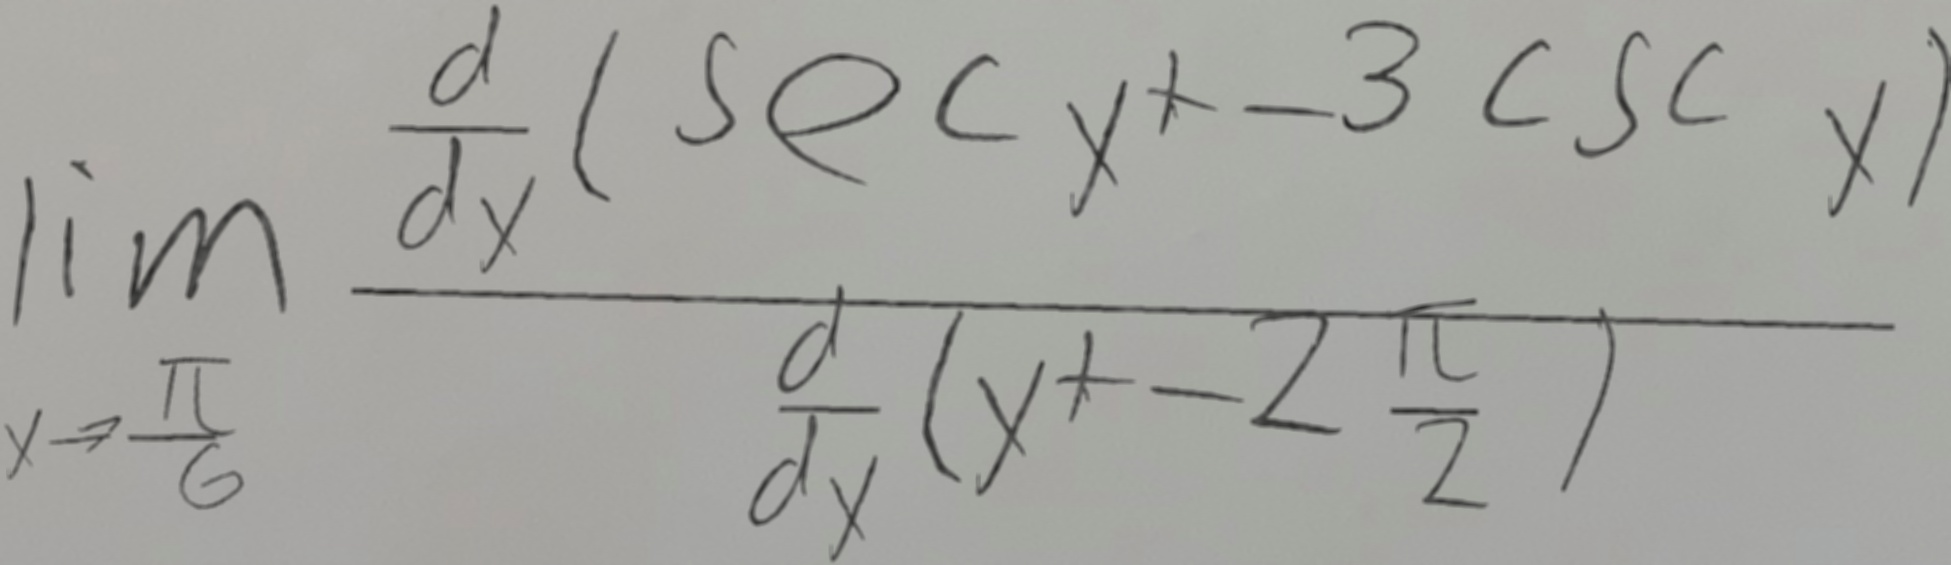 \lim_{y \to \frac{\pi}{6}} \frac{\frac{d}{dy}(\sec y + -3 \csc y)}{\frac{d}{dy}(y + -2 \frac{\pi}{2})}